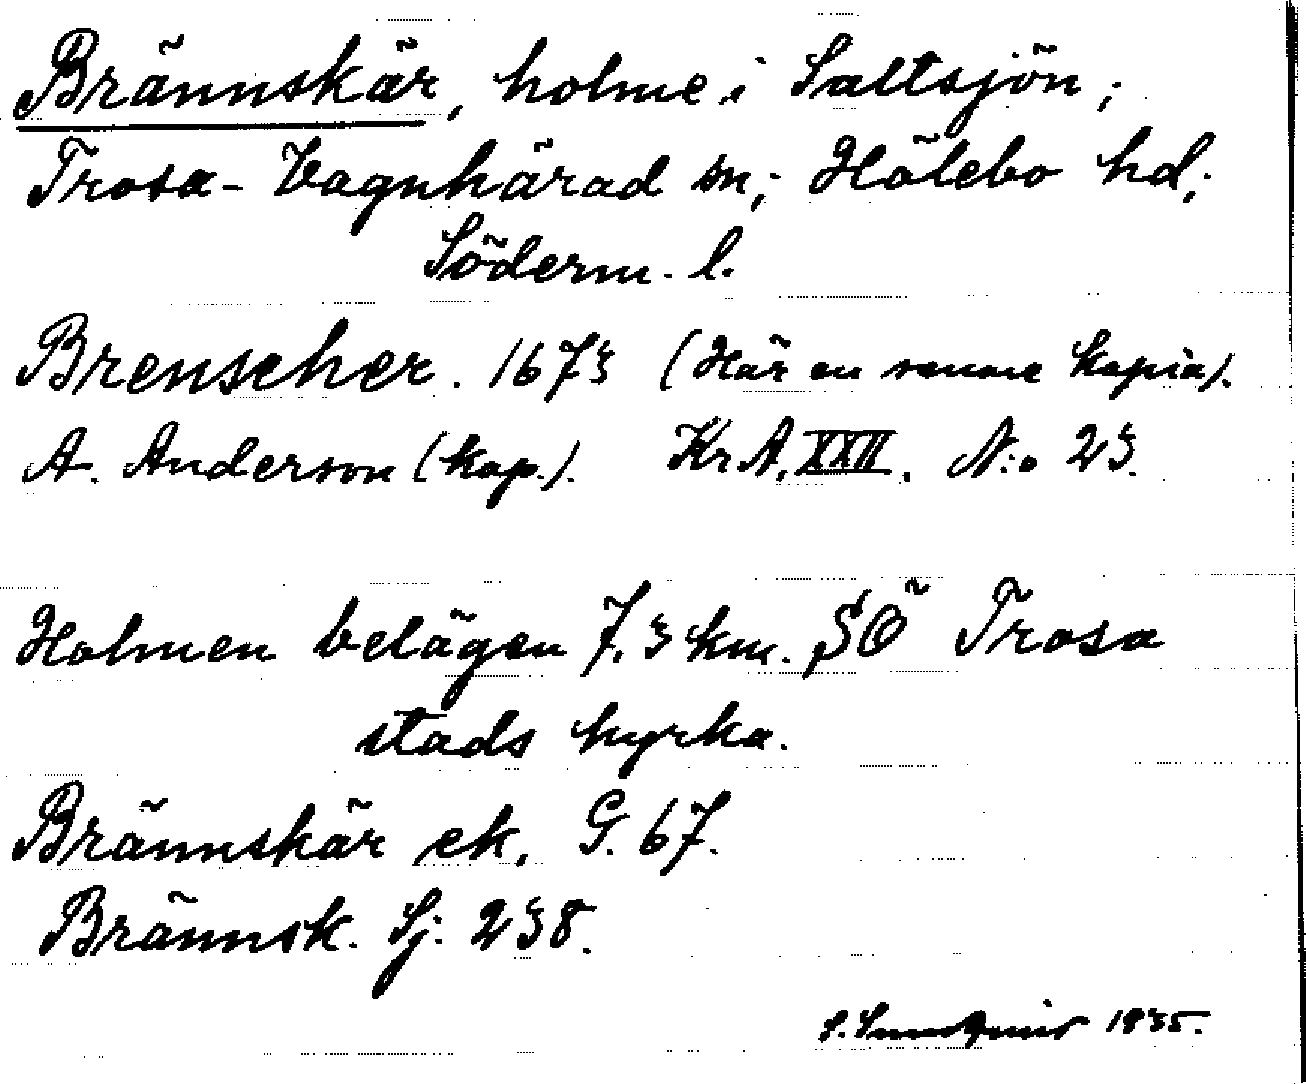 Brännskär, holme i Saltsjön;
Trosa-Vagnhärad sn; Hölebo hd;
Söderm. l.
Brenscher. 1673 (Här en senare kopia).
A. Anderson (kop.). Kr A. XXII. N:o 23.
Holmen belägen 7,3 km. SÖ Trosa
stads kyrka.
Brännskär ek. G. 67.
Brännsk. Sj. 238.
S. Sundqvist 1935.